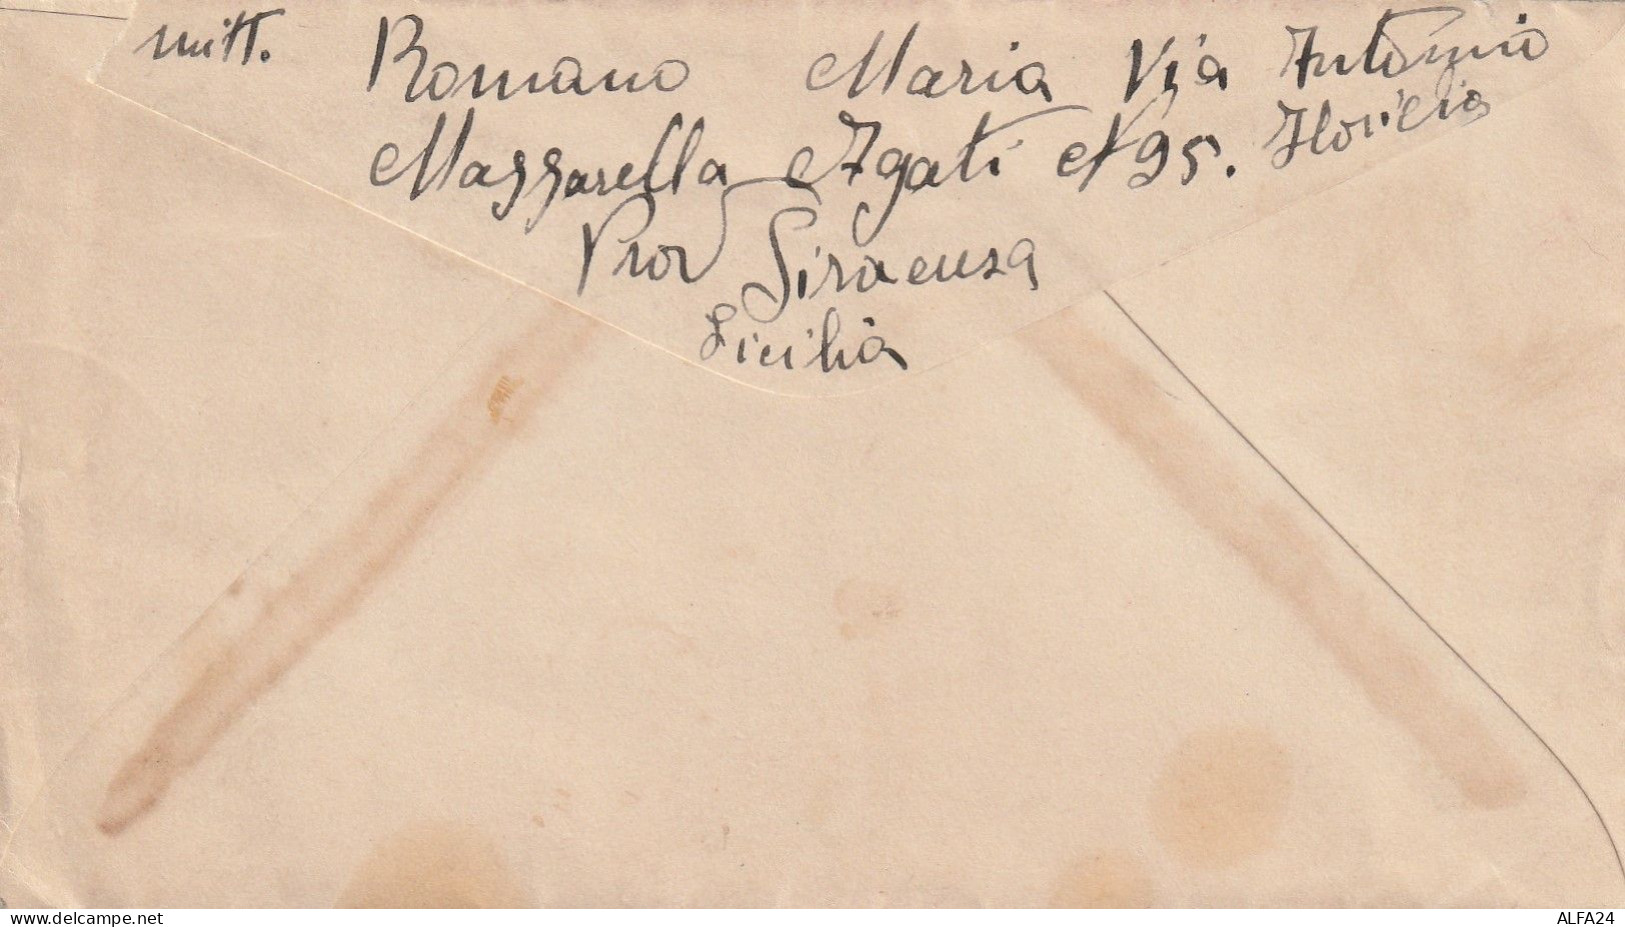 mitt. Romano Maria Via Antonio
Mazzarella Agati N 95. Floridia
Prov Siracusa
Sicilia
www.delcampe.net
ALFA24